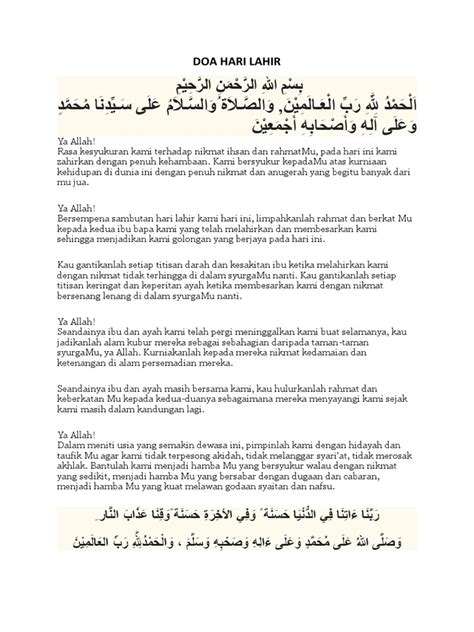 DOA HARI LAHIR
بِسْمِ اللهِ الرَّحْمَنِ الرَّحِيْمِ
اَلْحَمْدُ لِلَّهِ رَبِّ الْعَـالَمِيْنَ, وَالصَّـلاَةُ وَالسَّـلاَمُ عَلَى سَـيِّدِنَا مُحَمَّدٍ
وَعَلَى آلِـهِ وَأَصْحَابِهِ أَجْمَعِيْنَ
Ya Allah!
Rasa kesyukuran kami terhadap nikmat ihsan dan rahmatMu, pada hari ini kami
zahirkan dengan penuh kehambaan. Kami bersyukur kepadaMu atas kurniaan
kehidupan di dunia ini dengan penuh nikmat dan anugerah yang begitu banyak dari
mu jua.
Ya Allah!
Bersempena sambutan hari lahir kami hari ini, limpahkanlah rahmat dan berkat Mu
kepada kedua ibu bapa kami yang telah melahirkan dan membesarkan kami
sehingga menjadikan kami golongan yang berjaya pada hari ini.
Kau gantikanlah setiap titisan darah dan kesakitan ibu ketika melahirkan kami
dengan nikmat tidak terhingga di dalam syurgaMu nanti. Kau gantikanlah setiap
titisan keringat dan keperitan ayah ketika membesarkan kami dengan nikmat
bersenang lenang di dalam syurgaMu nanti.
Ya Allah!
Seandainya ibu dan ayah kami telah pergi meninggalkan kami buat selamanya, kau
jadikanlah alam kubur mereka sebagai sebahagian daripada taman-taman
syurgaMu, ya Allah. Kurniakanlah kepada mereka nikmat kedamaian dan
ketenangan di alam persemadian mereka.
Seandainya ibu dan ayah masih bersama kami, kau hulurkanlah rahmat dan
keberkatan Mu kepada kedua-duanya sebagaimana mereka menyayangi kami sejak
kami masih dalam kandungan lagi.
Ya Allah!
Dalam meniti usia yang semakin dewasa ini, pimpinlah kami dengan hidayah dan
taufik Mu agar kami tidak terpesong akidah, tidak melanggar syari'at, tidak merosak
akhlak. Bantulah kami menjadi hamba Mu yang bersyukur walau dengan nikmat
yang sedikit, menjadi hamba Mu yang bersabar dengan dugaan dan cabaran,
menjadi hamba Mu yang kuat melawan godaan syaitan dan nafsu.
رَبَّنَا ءَاتِنَا فِي الدُّنْيَا حَسَنَةً وَفِي الآخِرَةِ حَسَنَةً وَقِنَا عَذَابَ النَّارِ.
وَصَلَّى اللهُ عَلَى مُحَمَّدٍ وَعَلَى ءَالِهِ وَصَحْبِهِ وَسَلَّمَ ، وَالْحَمْدُلِلَّهِ رَبِّ العَالَمِيْنَ